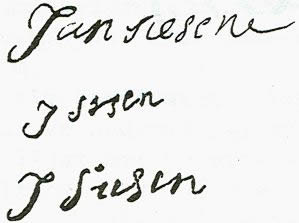 Jan siesene
J sssen
J Siesen